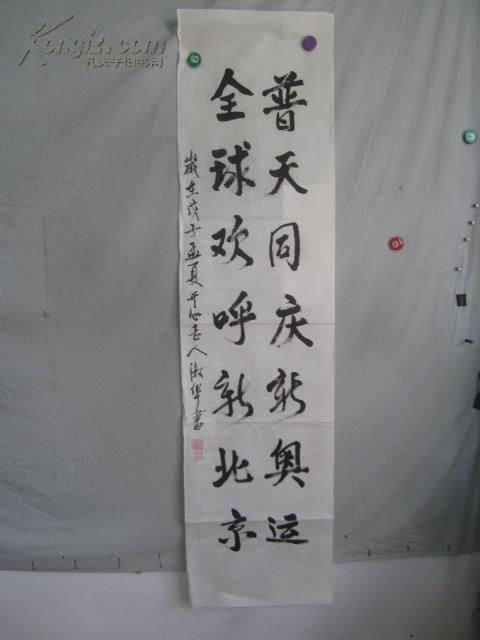 普天同庆新奥运
全球欢呼新北京
岁在戊子孟夏开心老人淑华书
Kongfz.com
孔夫子旧书网